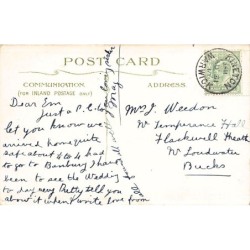 POST CARD
COMMUNICATION
(FOR INLAND POSTAGE ONLY)
ADDRESS.
Dear Em
Just a P.C. to
let you know we
arrived home quite
safe about 4 to 4 had
to go to Banbury I have
been to see the Wedding
to day very Pretty tell you
about it when I write love from
Mrs J Weedon
Nr Temperance Hall
Flackwell Heath
Nr Loudwater
Bucks